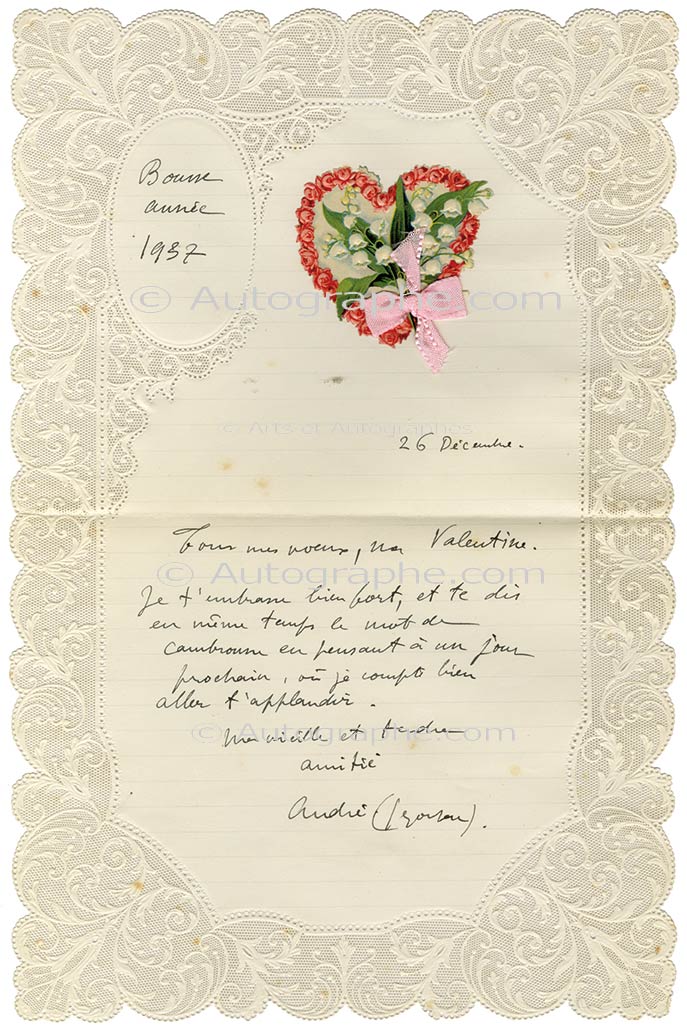 Bonne
année
1937
© Autographe.com
© Arts et Autographes
26 Décembre.
Tous mes voeux, ma Valentine.
© Autographe.com
Je t'embrasse bien fort, et te dis
en même temps le mot de
Cambronne en pensant à un jour
prochain, où je compte bien
aller t'applaudir.
© Autographe.com
Ma vieille et tendre
amitié
André